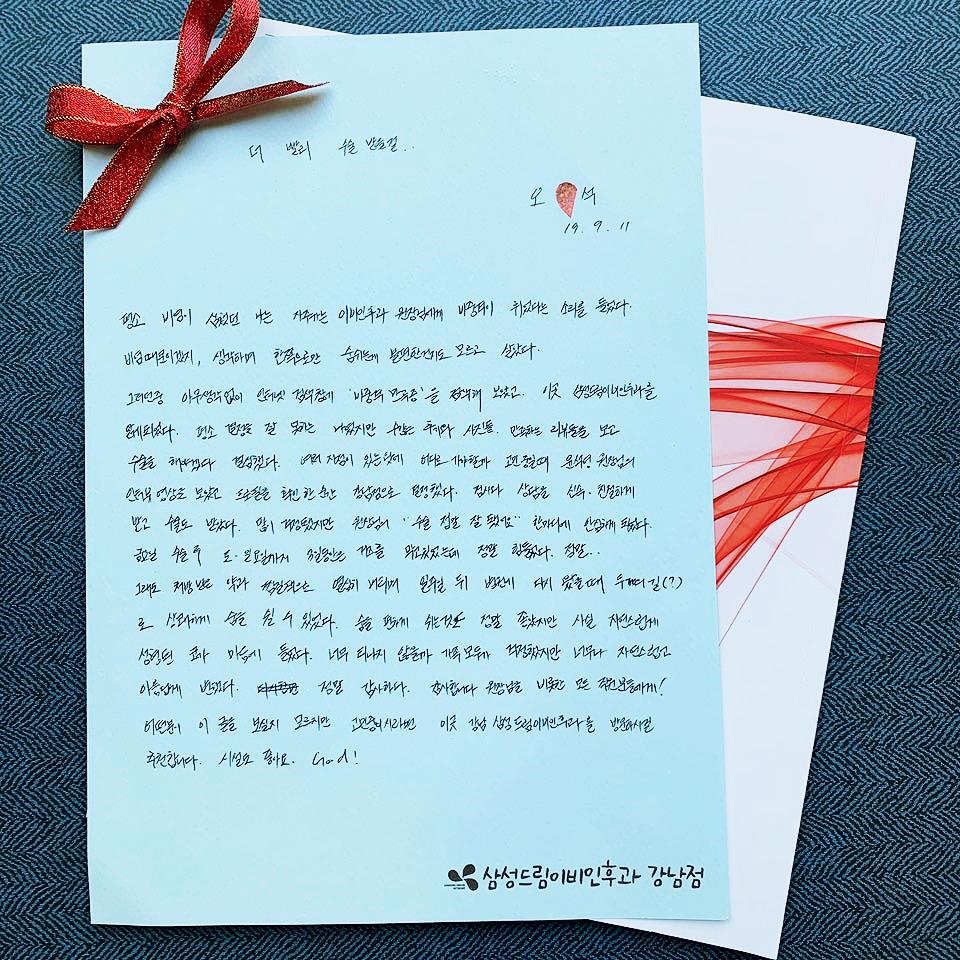 더 빨리 수술 받을걸..
오 석
19. 9. 11
평소 비염이 심했던 나는 자주가는 이비인후과 원장님에게 비중격이 휘었다는 소리를 들었다.
비염때문이겠지, 생각하며 한쪽으로만 숨쉬는게 불편한건지도 모르고 살았다.
그러던중 아무생각없이 인터넷 검색창에 '비중격 만곡증'을 검색해 보았고. 이곳 삼성드림이비인후과를
알게되었다. 평소 결정을 잘 못하는 나였지만 수많은 후기와 사진들. 만족하는 리뷰들을 보고
수술을 해야겠다 결심했다. 여러 지점이 있는탓에 어디로 가야할까 고민 중일때 원장님의
인터뷰 영상을 보았고 확인 한 순간 강남점으로 결정했다. 검사와 상담을 신속·친절하게
받고 수술도 받았다. 많이 걱정됐지만 원장님의 "수술 정말 잘 됐어요" 한마디에 안심하게 되었다.
금요일 수술 후 토·일요일까지 3일동안은 거즈를 막고있었는데 정말 힘들었다. 정말..
그래도 처방 받은 약과 열심히 버티며 월요일 뒤 병원에 다시 왔을때 두개의 길(?)
로 상쾌하게 숨을 쉴 수 있었다. 숨을 편하게 쉬는것도 정말 좋았지만 사실 자연스럽게
성형된 코가 마음에 들었다. 너무 티나지 않을까 가족 모두가 걱정했지만 너무나 자연스럽고
아름답게 변했다. 정말 감사하다. 감사합니다 원장님을 비롯한 모든 직원분들에게!
어떤분이 이 글을 보실지 모르지만 고민중이시라면 이곳 강남 삼성드림이비인후과을 방문하시길
추천합니다. 시설도 좋아요. God!
삼성드림이비인후과 강남점